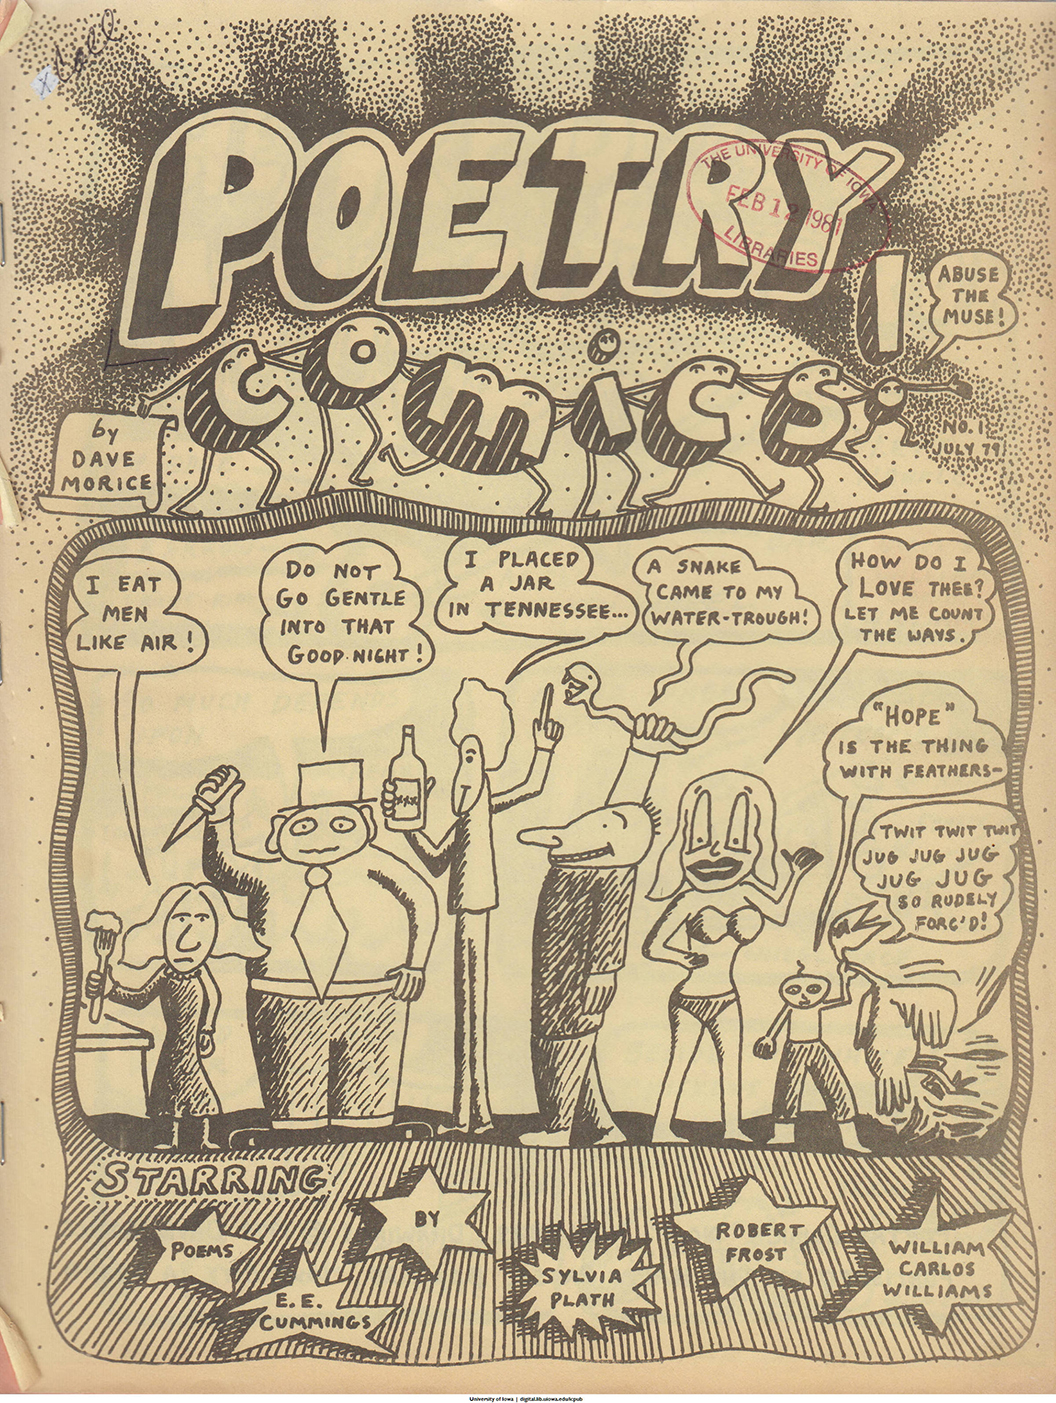 xCall
POETRY
THE UNIVERSITY OF IOWA
FEB 12 1981
LIBRARIES
comics!
ABUSE
THE
MUSE!
by
DAVE
MORICE
NO. 1
JULY 79
I EAT
MEN
LIKE AIR!
DO NOT
GO GENTLE
INTO THAT
GOOD NIGHT!
I PLACED
A JAR
IN TENNESSEE...
A SNAKE
CAME TO MY
WATER-TROUGH!
HOW DO I
LOVE THEE?
LET ME COUNT
THE WAYS.
"HOPE"
IS THE THING
WITH FEATHERS-
TWIT TWIT TWIT
JUG JUG JUG
JUG JUG
SO RUDELY
FORC'D!
XXX
STARRING
POEMS
BY
E.E.
CUMMINGS
SYLVIA
PLATH
ROBERT
FROST
WILLIAM
CARLOS
WILLIAMS
University of Iowa | digital.lib.uiowa.edu/icpub